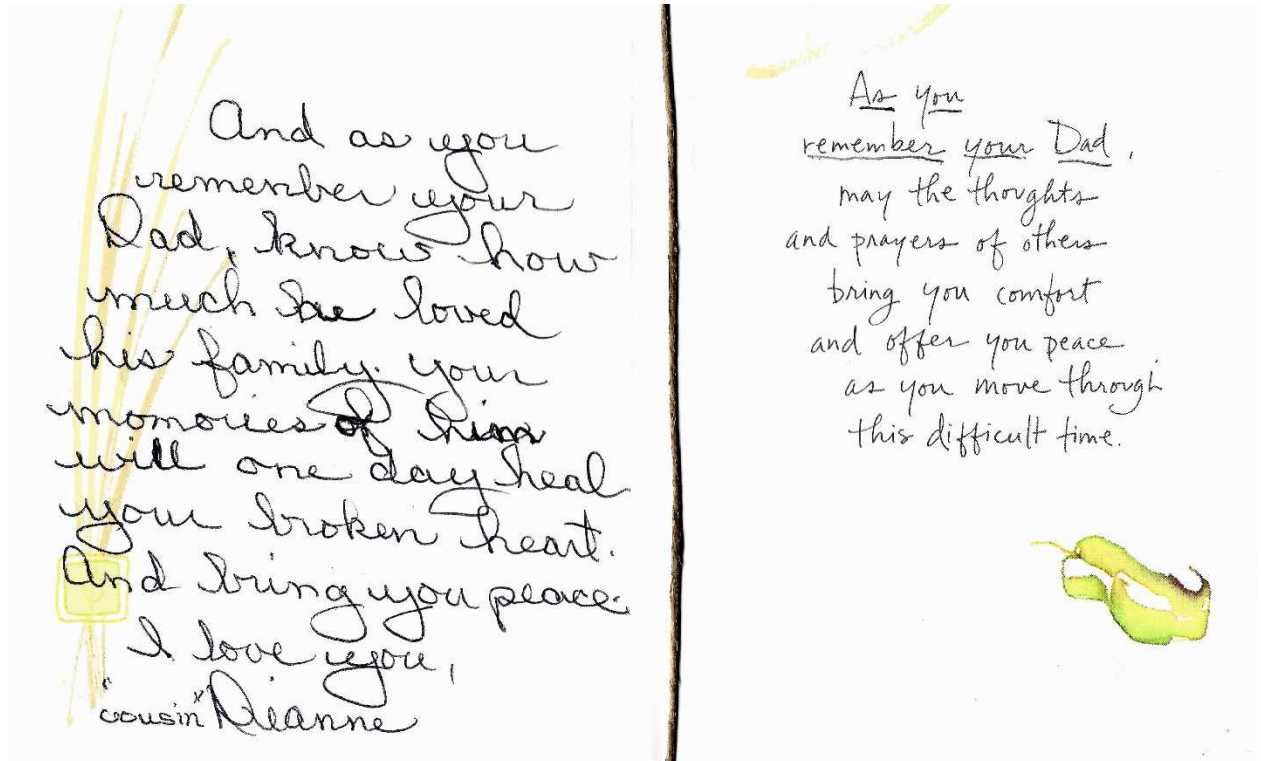 And as you
remember your
Dad, know how
much he loved
his family. Your
momories of him
will one day heal
your broken heart.
And bring you peace.
I love you,
"cousin" Dianne
As you
remember your Dad,
may the thoughts
and prayers of others
bring you comfort
and offer you peace
as you move through
this difficult time.